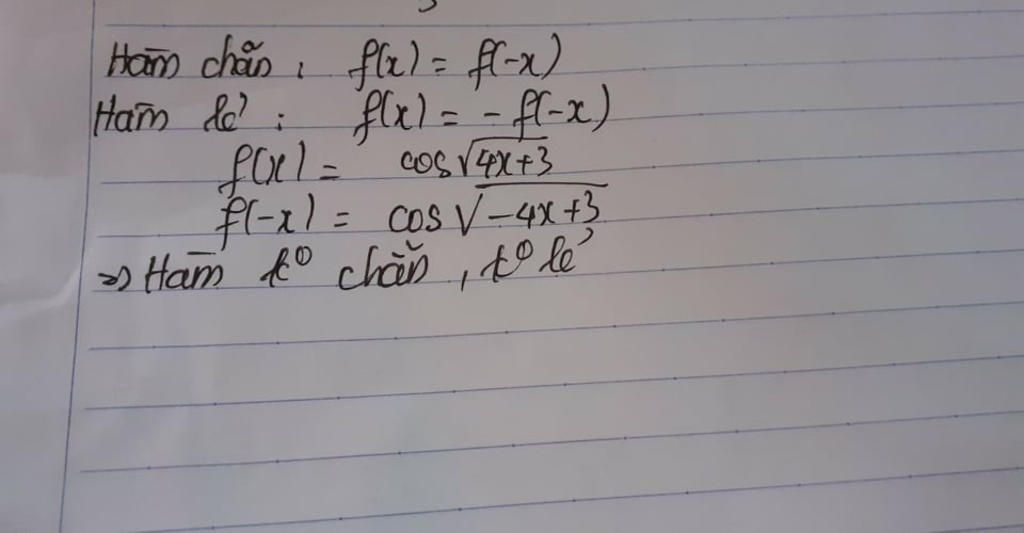 Hàm chẵn : f(x) = f(-x)
Hàm lẻ : f(x) = - f(-x)
f(x) = cos√4x+3
f(-x) = cos √-4x+3
=> Hàm k⁰ chẵn , k⁰ lẻ